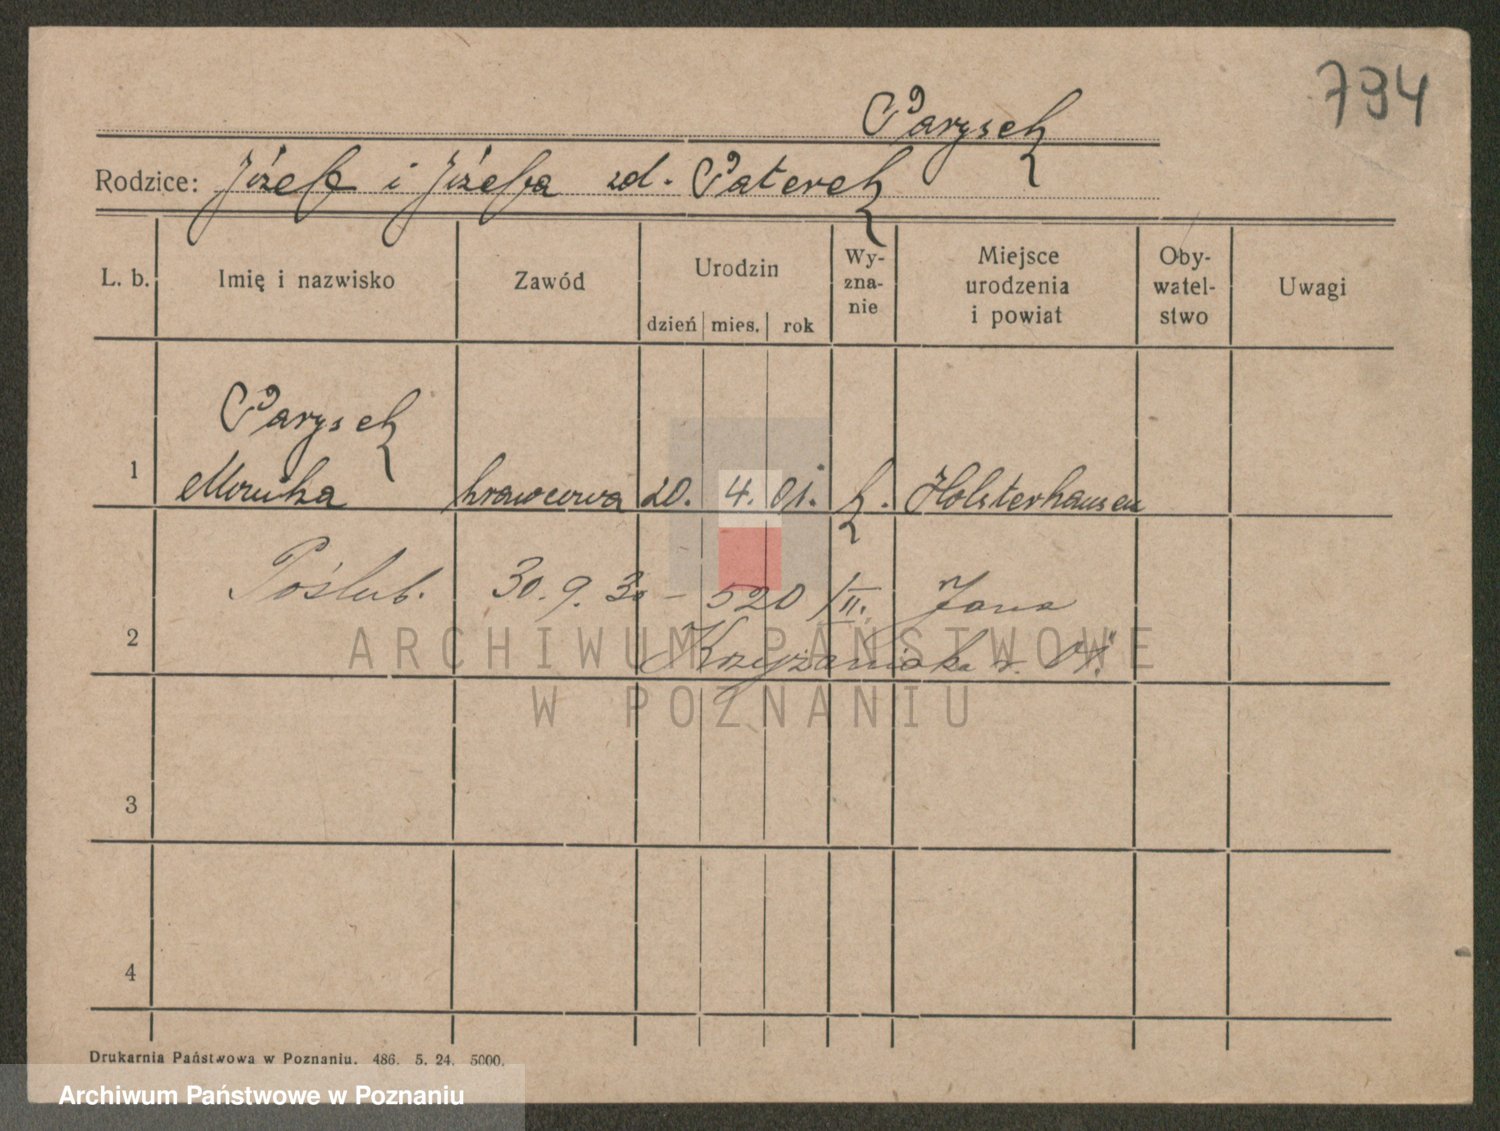 794
Parysek
Rodzice: Józef i Józefa zd. Paterek
L. b. Imię i nazwisko Zawód Urodzin dzień mies. rok Wy-zna-nie Miejsce urodzenia i powiat Oby-watel-stwo Uwagi
Parysek
1 Monika krawcowa 20. 4. 01. k. Holsterhausen
Poślub. 30. 9. 30 - 520/II. Jana
2 Krzyżaniaka r.
ARCHIWUM PAŃSTWOWE
W POZNANIU
3
4
Drukarnia Państwowa w Poznaniu. 486. 5. 24. 5000.
Archiwum Państwowe w Poznaniu